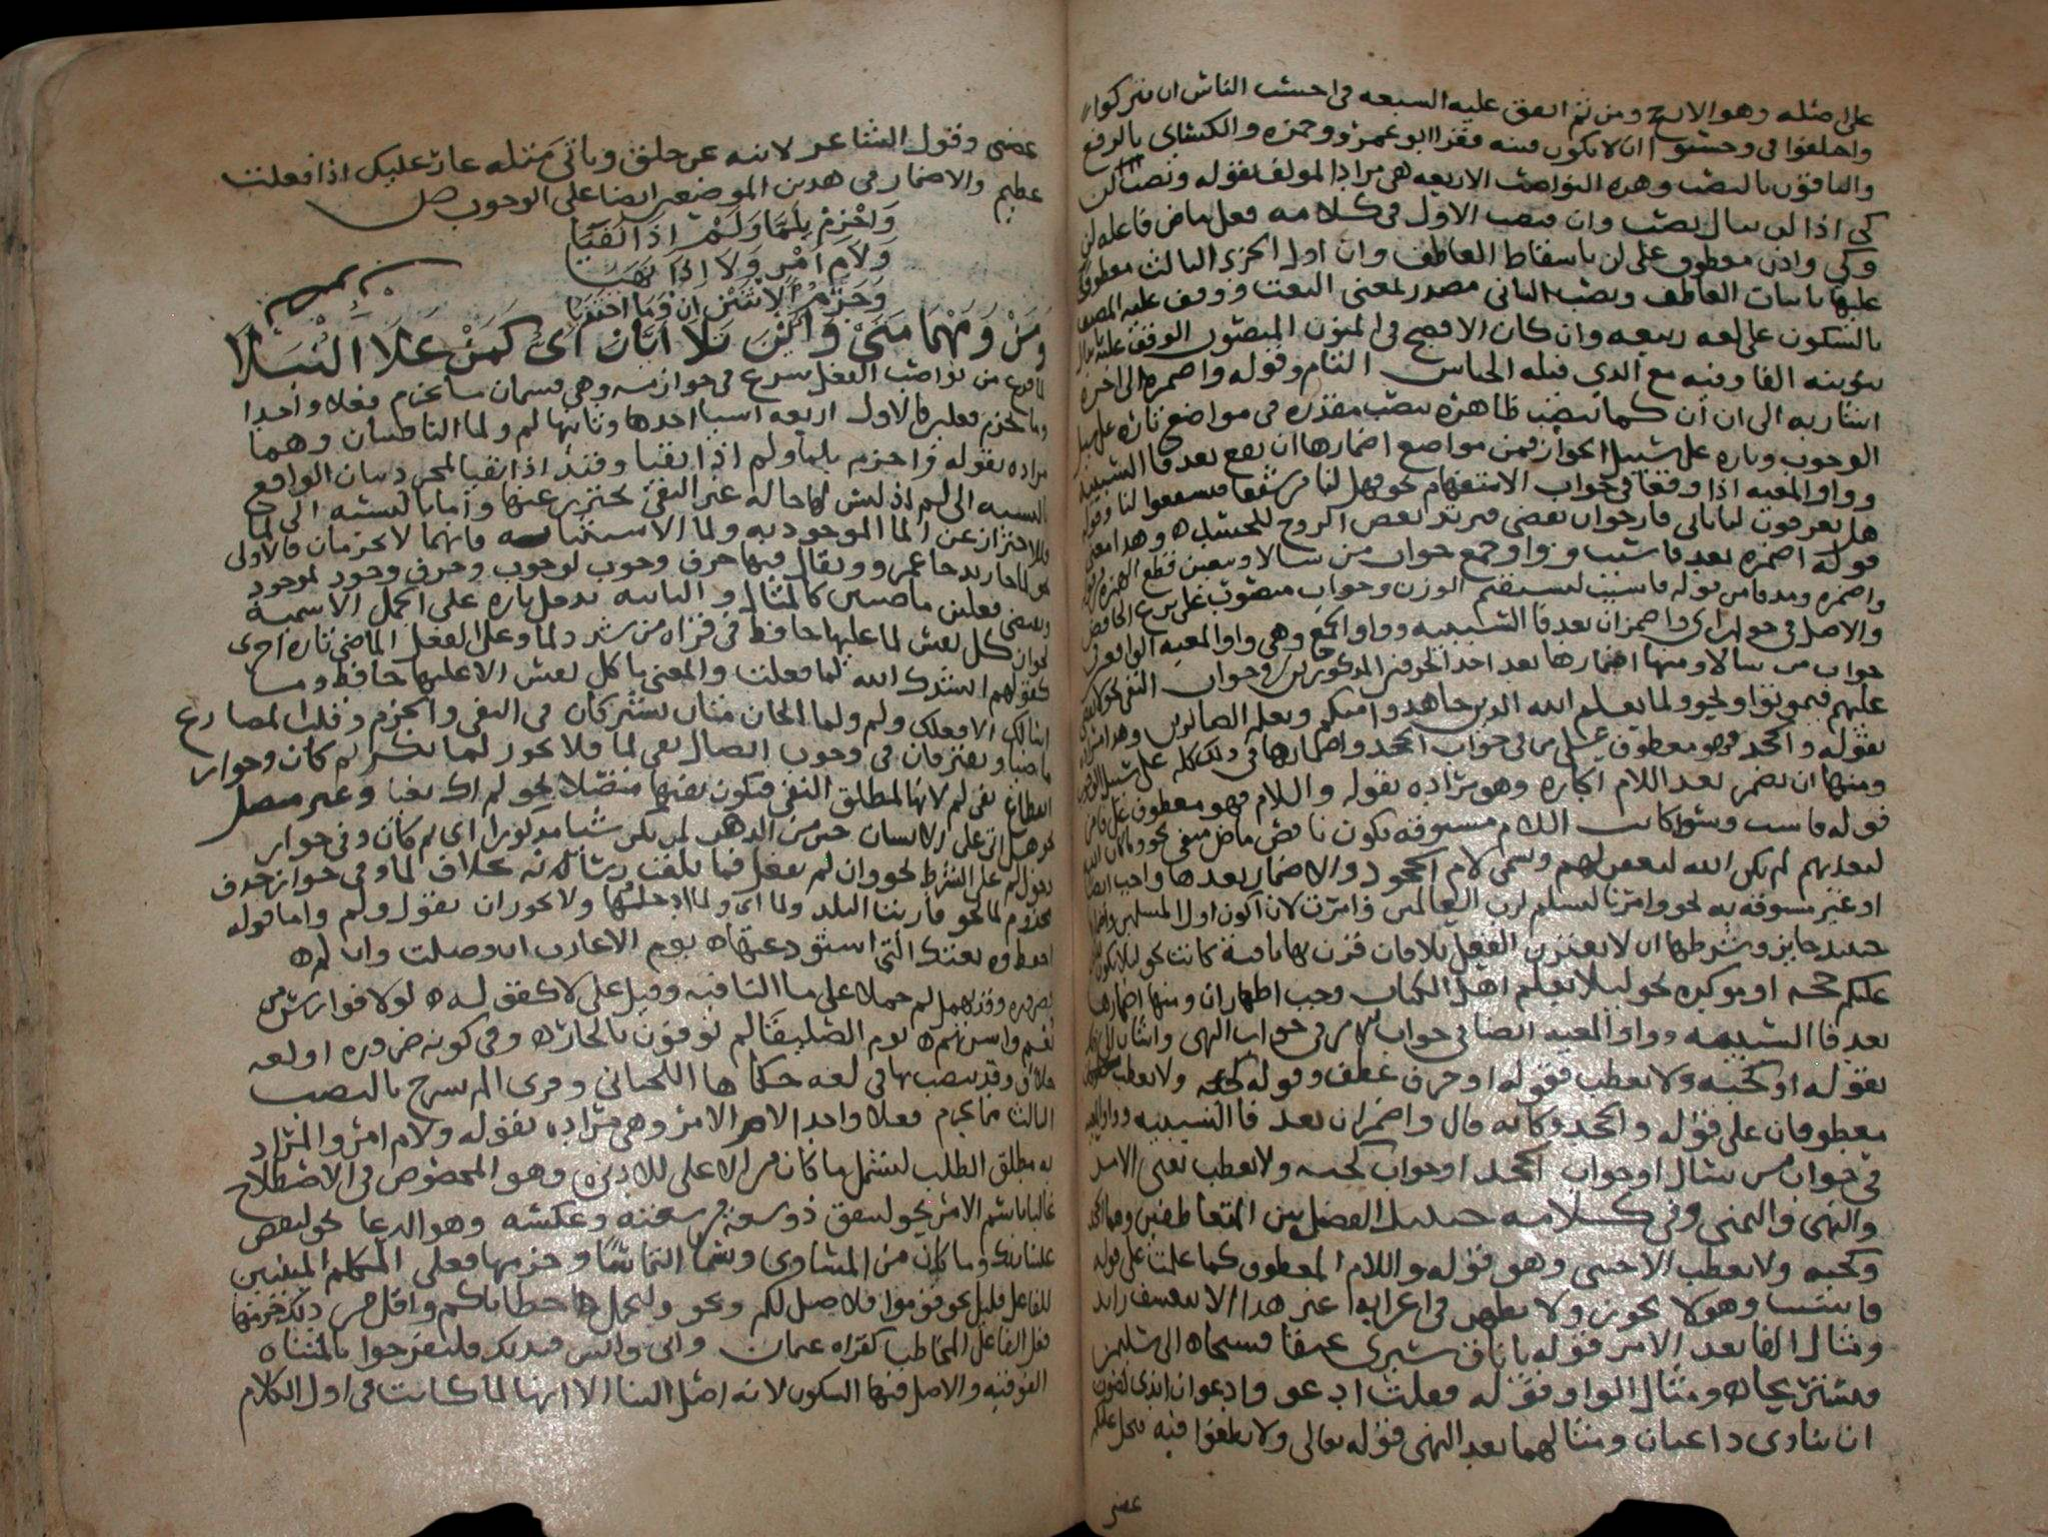 على مثله وهو الارجح ومن ثم اتفق عليه السبعه فى احسب الناس ان يتركوا
واختلفوا فى وحسبوا ان لا تكون فتنه فقرا ابو عمرو وحمزه والكسائى بالرفع
والباقون بالنصب وهذه النواصب الاربعه هى مراد المولف بقوله ونصب ان لن
كى اذا لن ينال نصب وان فنصب الاول فى كلامه فعل ماض فاعله لن
وكى واذن معطوف على لن باسقاط العاطف وان اول الجزء الثالث معطوف
عليها باثبات العاطف ونصب الثانى مصدر لمعنى النعت ووقف عليه المصنف
بالسكون على لغه ربيعه وان كان الافصح فى المنون المنصوب الوقف عليه بابدال
تنوينه الفا وفيه مع الذي قبله الجناس التام وقوله واضمره الى اخره
اشار به الى ان ان كما تنصب ظاهره تنصب مقدره فى مواضع تاره على سبيل
الوجوب وتاره على سبيل الجواز فمن مواضع اضمارها ان يقع بعد فا السببيه
وواو المعيه اذا وقعا فى جواب الاستفهام نحو فهل لنا من شفعا فيشفعوا لنا وقوله
هل تعرفون لباناتى فارجو ان تقضى فيرتد بعض الروح للجسد وهذا معنى
قوله اضمره بعد فا سبب وواو جمع جواب من سالا
واضمره ومد فا من قوله فا سبب ليستقيم الوزن وجواب منصوب على نزع الخافض
والاصل فى جواب اى واضمر ان بعد فا السببيه وواو الجمع وهى واو المعيه الواقعه فى
جواب من سالا ومنها اضمارها بعد احد الحرفين المذكورين فى جواب النفى نحو لا يقضى
عليهم فيموتوا ونحو ولما يعلم الله الذين جاهدوا منكم ويعلم الصابرين وهذا
بقوله والجحد فهو معطوف على من اى فى جواب الجحد واضمارها فى ذلك كله على سبيل الوجوب
ومنها ان تضمر بعد اللام الجاره وهو مراده بقوله واللام فهو معطوف على فا من
قوله فا سبب وسوا كانت اللام مسبوقه بكون ناقص ماض منفى نحو وما كان الله
ليعذبهم لم يكن الله ليغفر لهم وتسمى لام الجحود والاضمار بعدها واجب ايضا
او غير مسبوقه به نحو وامرنا لنسلم لرب العالمين وامرت لان اكون اول المسلمين
حينئذ جايز وشرطها ان لا يقترن الفعل بلا فان قرن بها نافية كانت نحو ليلا يكون
عليكم حجه او موكده نحو ليلا يعلم اهل الكتاب وجب اظهار ان ومنها اضمارها
بعد فا السببيه وواو المعيه ايضا فى جواب الامر فى جواب النهى واشار
بقوله او كجيه ولا تعطب فقوله او حرف عطف وقوله كجيه ولا تعطب
معطوفان على قوله والجحد وكانه قال واضمر ان بعد فا السببيه وواو
فى جواب من سال او جواب الجحد او جواب كجيه ولا تعطب يعنى الامر
والنهى والتمنى وفى كلامه حينئذ الفصل بين المتعاطفين وهما الجحد
وكجيه ولا تعطب الاجنبى وهو قوله واللام المعطوف كما علمت على قوله
فا سبب وهو لا يجوز ولا يظهر فى اعرابه غير هذا الا بتعسف زايد
ومثال الفا بعد الامر قوله يا ناق سيرى عنقا فسيحا الى سليمن
فنستريحا ومثال الواو قوله فقلت ادعى وادعو ان اندى لصوت
ان ينادى داعيان ومثالهما بعد النهى قوله تعالى ولا تطغوا فيه فيحل عليكم
غضبى
غضبى وقول الشاعر لا تنه عن خلق وتاتى مثله عار عليك اذا فعلت
عظيم والاضمار فى هذين الموضعين ايضا على الوجوب ص
وَاجْزِمْ بِلَمَّا وَلَمْ اذَا نَفَيَا
وَلَامَ امْرٍ وَلَا اِذَا نَهَيَا
وَجَزْمُ الاثْنَيْنِ انْ وَمَا
وَمَنْ وَمَهْمَا مَتَى وَايْنَ تَلَا ايَّانَ اىُّ كَمَنْ عَلَا النُّبَلَا
لما فرغ من نواصب الفعل شرع فى جوازمه وهى قسمان ما يجزم فعلا واحدا
وما يجزم فعلين فالاول اربعه اشيا احدها وثانيها لم ولما النافيتان وهما
مراده بقوله واجزم بلما ولم اذا نفيا وقيد اذا نفيا لمجرد بيان الواقع
بالنسبه الى لم اذ ليس لها حاله غير النفى يحترز عنها واما بالنسبه الى لما
فللاحتراز عن لما الموجوديه ولما الاستثنائيه فانهما لا يجزمان فالاولى
نحو لما جا زيد جا عمرو ويقال فيها حرف وجوب لوجوب وحرف وجود لوجود
وتقتضى فعلين ماضيين كالمثال والثانيه تدخل تاره على الجمل الاسمية
نحو ان كل نفس لما عليها حافظ فى قراه من شدد لما وعلى الفعل الماضى تاره اخرى
كقولهم انشدك الله لما فعلت والمعنى ما كل نفس الا عليها حافظ وما
اسالك الا فعلك ولم ولما الجازمتان يشتركان فى النفى والجزم وقلب المضارع
ماضيا ويفترقان فى وجوب اتصال نفى لما فلا يجوز لما يكن ثم كان وجواز
انقطاع نفى لم لانها لمطلق النفى فتكون نفيها منفصلا نحو لم اك بغيا وغير متصل
نحو هل اتى على الانسان حين من الدهر لم يكن شيا مذكورا اى ثم كان وفى جواز
دخول لم على الشرط نحو وان لم تفعل فما بلغت رسالته بخلاف لما وفى جواز حذف
مجزوم لما نحو قاربنا البلد ولما اى ولما ادخلها ولا يجوز ان تقول ولم واما قوله
احفظ وديعتك التى استودعتها يوم الاعازب ان وصلت وان لم
فضروره وقد تهمل لم حملا على ما النافيه وقيل على لا كقوله لولا فوارس من
نعم واسرتهم يوم الصليفا لم يوفون بالجار وفى كونه ضروره او لغه
خلاف وقد ينصب بها فى لغه حكاها اللحيانى وقرى الم نشرح بالنصب
الثالث مما يجزم فعلا واحدا لام الامر وهى مراده بقوله ولام امر والمراد
به مطلق الطلب ليشمل ما كان من الاعلى للادنى وهو المخصوص فى الاصطلاح
غالبا باسم الامر نحو لينفق ذو سعة من سعته وعكسه وهو الدعا نحو ليقض
علينا ربك وما كان من المساوى وسمى التماسا وجزمها فعلى المتكلم المبنيين
للفاعل قليل نحو قوموا فلاصل لكم ونحو ولنحمل خطاياكم واقل من ذلك جزمها
فعل الفاعل المخاطب كقراه عثمان وابى وانس فبذلك فلتفرحوا بالمثناه
الفوقيه والاصل فيها السكون لانه اصل البنا الا انها لما كانت فى اول الكلام